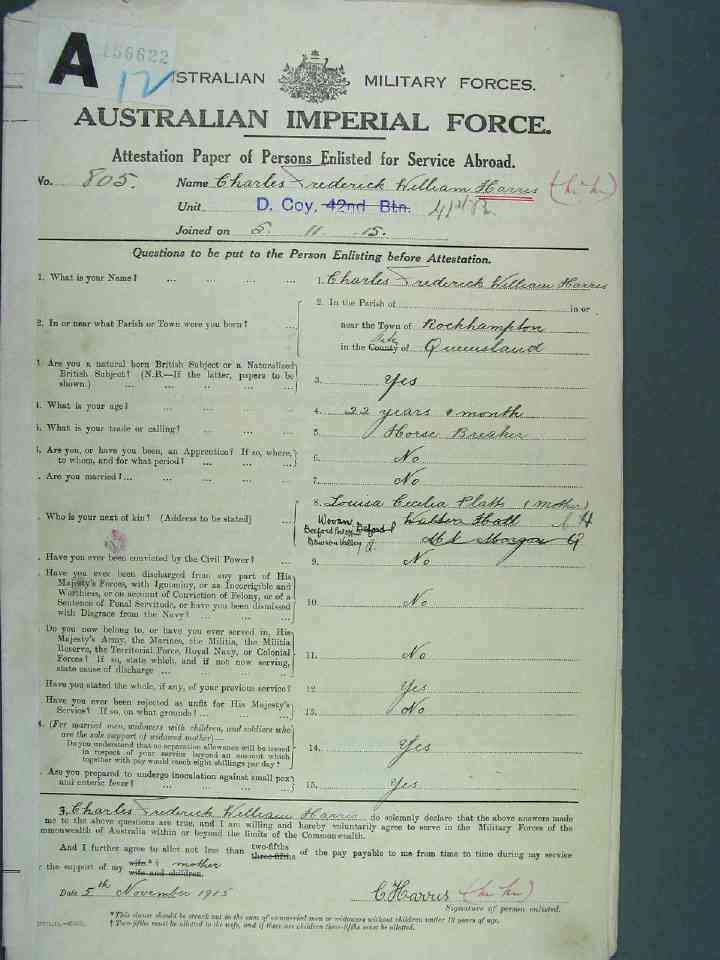 A 156622
12
AUSTRALIAN MILITARY FORCES.
AUSTRALIAN IMPERIAL FORCE.
Attestation Paper of Persons Enlisted for Service Abroad.
No. 805. Name Charles Frederick William Harris
Unit D. Coy, 42nd Btn.
Joined on 5. 11. 15.
Questions to be put to the Person Enlisting before Attestation.
1. What is your Name? ... ... ... ... 1. Charles Frederick William Harris
2. In the Parish of in or
2. In or near what Parish or Town were you born? ... near the Town of Rockhampton
in the County of State Queensland
Are you a natural born British Subject or a Naturalised
British Subject? (N.B.—If the latter, papers to be
shown.) ... ... ... ... ... 3. Yes
What is your age? ... ... ... ... 4. 22 years 1 month
What is your trade or calling? ... ... ... 5. Horse Breaker
Are you, or have you been, an Apprentice? If so, where,
to whom, and for what period? ... ... ... 6. No
Are you married?... ... ... ... ... 7. No
8. Louisa Cecilia Platt (mother)
Who is your next of kin? (Address to be stated) ... Wowan Walter Hall
Dawson Valley Q. Mt Morgan Q
Have you ever been convicted by the Civil Power? ... 9. No
Have you ever been discharged from any part of His
Majesty's Forces, with Ignominy, or as Incorrigible and
Worthless, or on account of Conviction of Felony, or of a
Sentence of Penal Servitude, or have you been dismissed
with Disgrace from the Navy? ... ... ... 10. No
Do you now belong to, or have you ever served in, His
Majesty's Army, the Marines, the Militia, the Militia
Reserve, the Territorial Force, Royal Navy, or Colonial
Forces? If so, state which, and if not now serving,
state cause of discharge ... ... ... ... 11. No
Have you stated the whole, if any, of your previous service? 12 Yes
Have you ever been rejected as unfit for His Majesty's
Service? If so, on what grounds? ... ... ... 13. No
4. (For married men, widowers with children, and soldiers who
are the sole support of widowed mother)—
Do you understand that no separation allowance will be issued
in respect of your service beyond an amount which
together with pay would reach eight shillings per day? 14. Yes
Are you prepared to undergo inoculation against small pox
and enteric fever? ... ... ... ... 15. Yes
I, Charles Frederick William Harris do solemnly declare that the above answers made
me to the above questions are true, and I am willing and hereby voluntarily agree to serve in the Military Forces of the
mmonwealth of Australia within or beyond the limits of the Commonwealth.
And I further agree to allot not less than two-fifths three-fifths of the pay payable to me from time to time during my service
r the support of my wife* † mother
wife and children.
Date 5th November 1915 C Harris
Signature of person enlisted.
* This clause should be struck out in the case of unmarried men or widowers without children under 18 years of age.
† Two-fifths must be allotted to the wife, and if there are children three-fifths must be allotted.